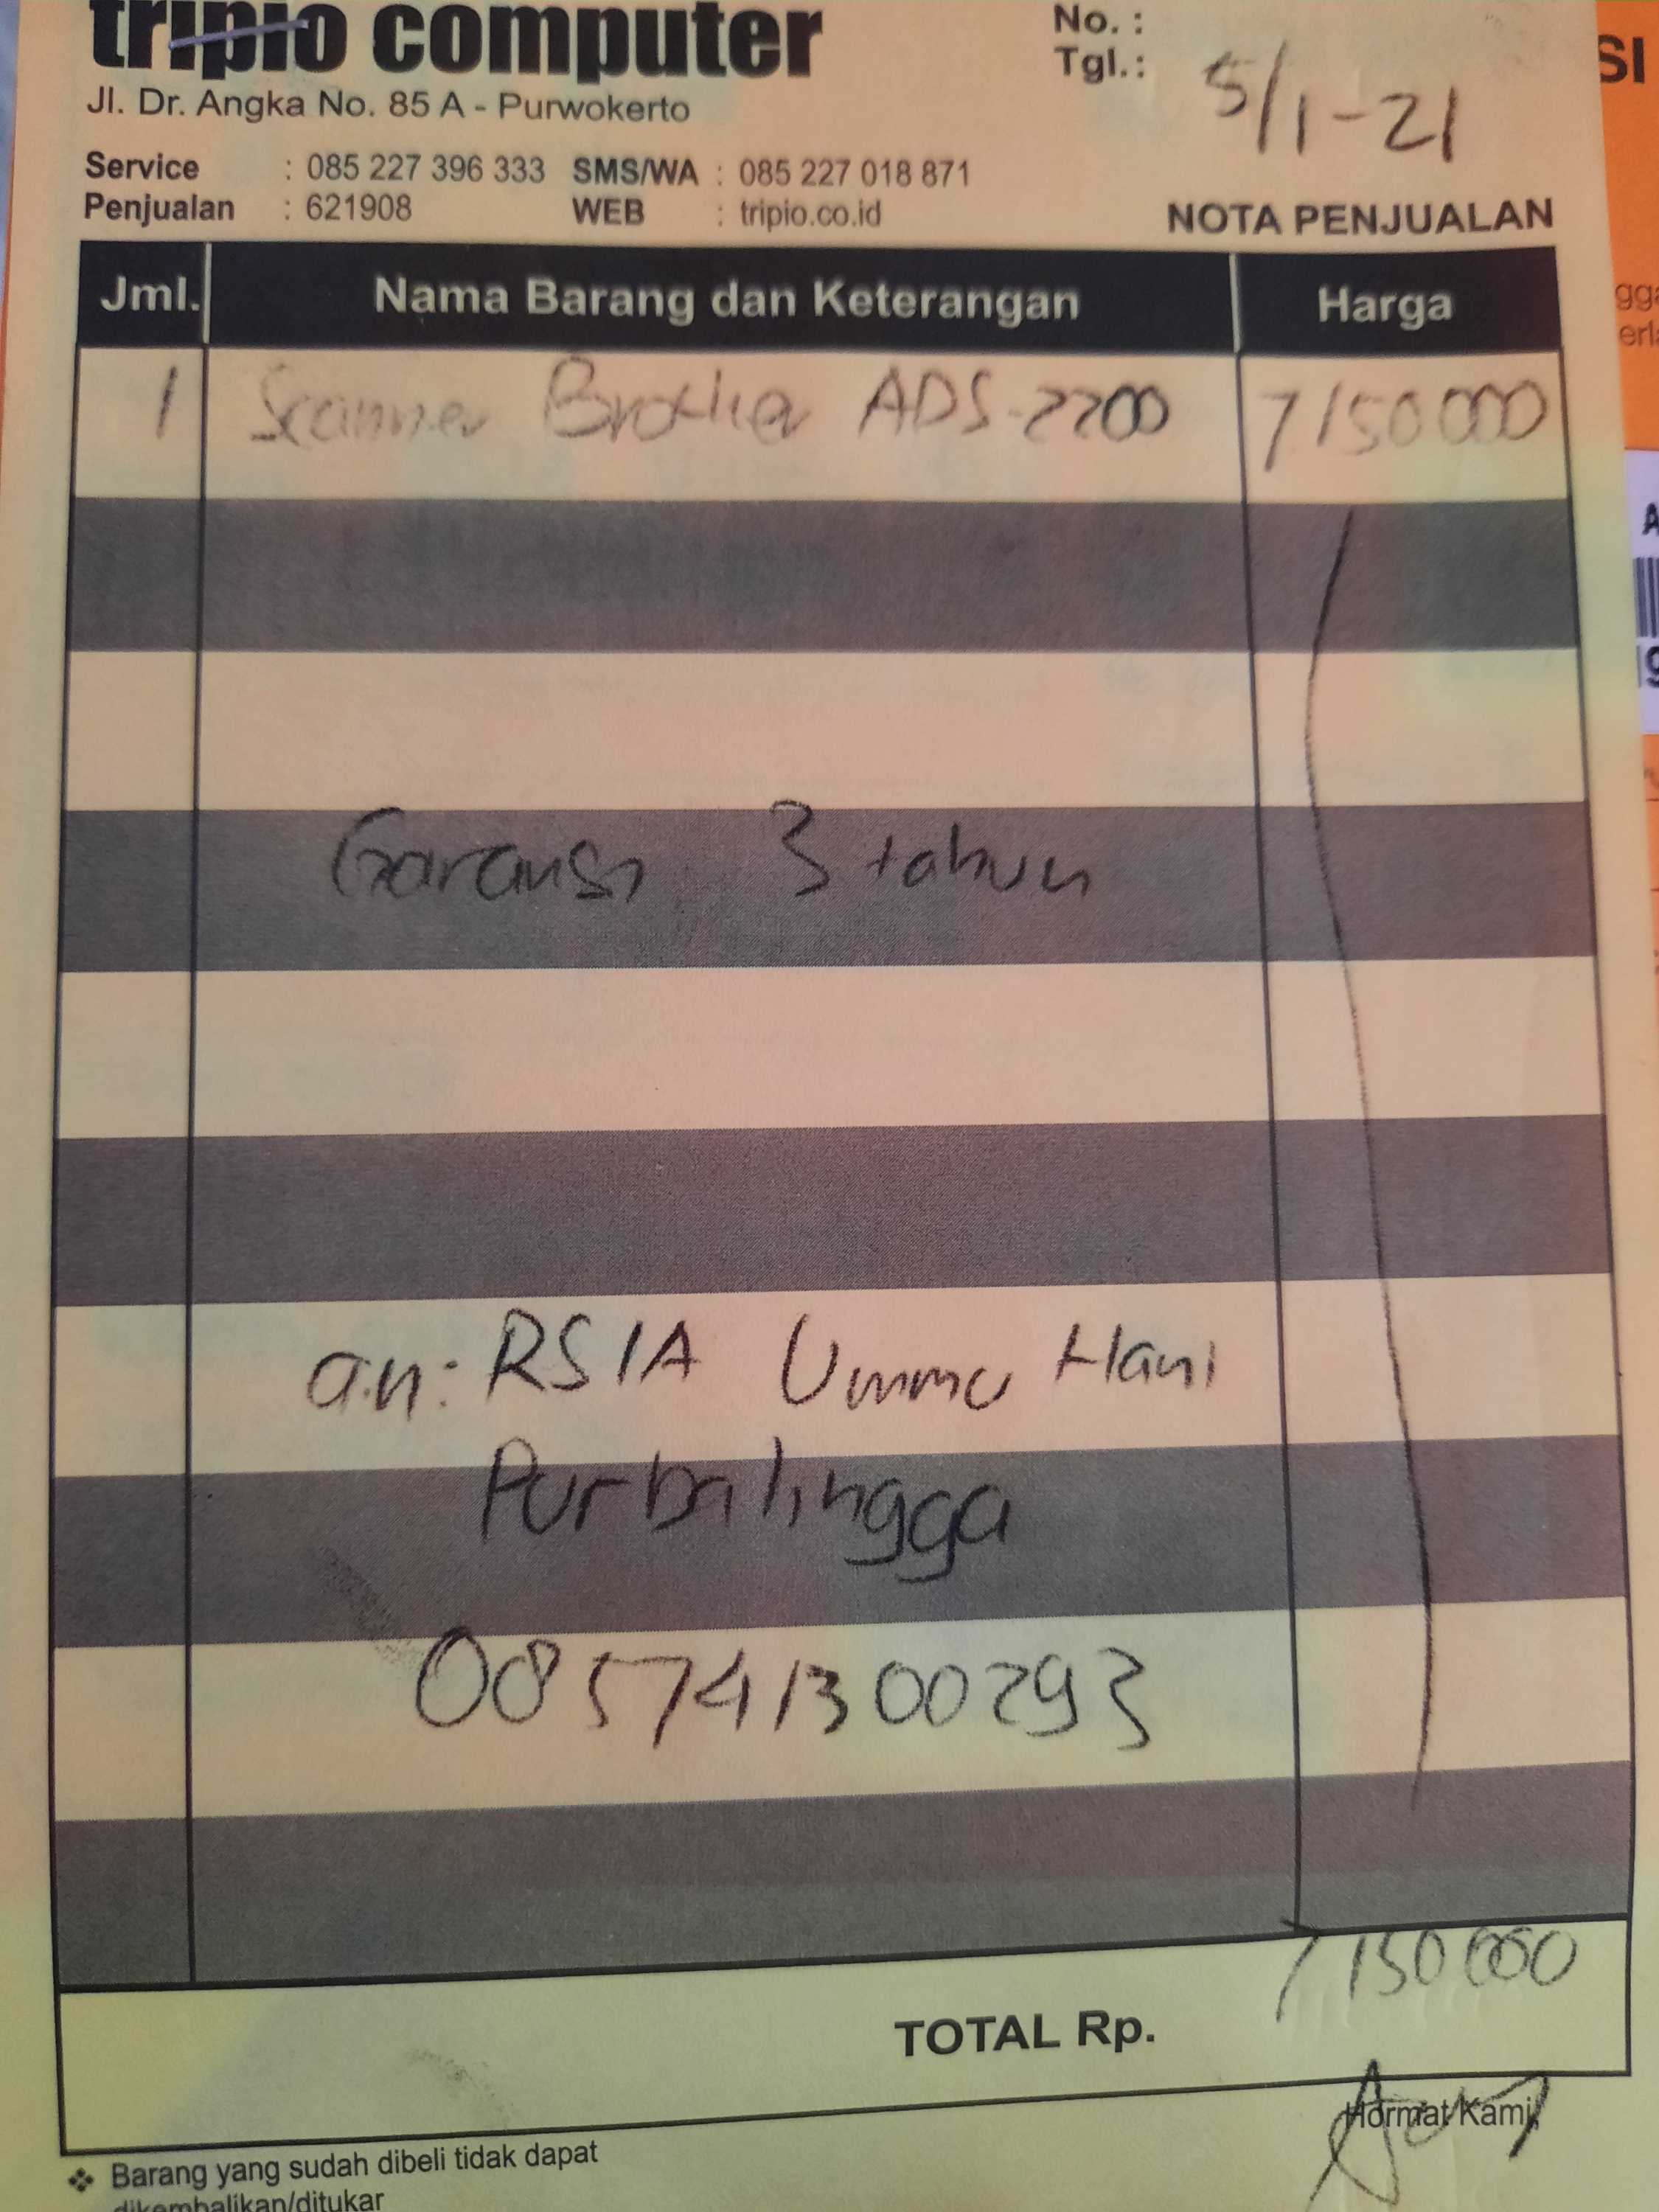 tripio computer
No. :
Tgl.: 5/1-21
Jl. Dr. Angka No. 85 A - Purwokerto
Service : 085 227 396 333 SMS/WA : 085 227 018 871
Penjualan : 621908 WEB : tripio.co.id
NOTA PENJUALAN
Jml. Nama Barang dan Keterangan Harga
1 Scanner Brother ADS-2200 7150000
Garansi 3 tahun
a.n: RSIA Ummu Hani
Purbalingga
085741300293
TOTAL Rp. 7150000
Hormat Kami,
❖ Barang yang sudah dibeli tidak dapat
dikembalikan/ditukar
SI